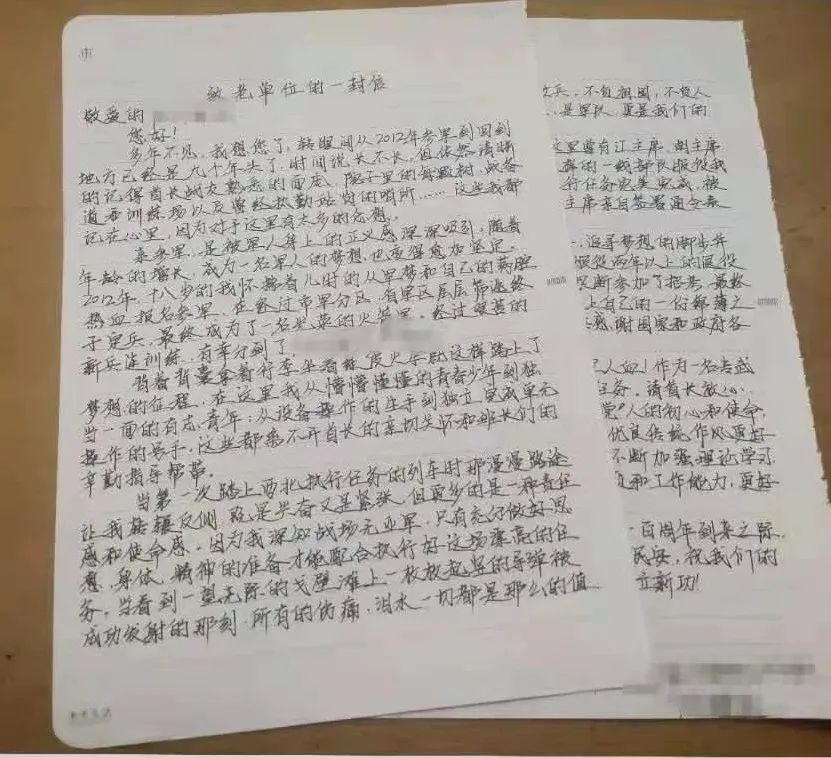 致老单位的一封信
敬爱的
您好!
多年不见,我想您了,转眼间从2012年参军到回到
地方已经是九个年头了,时间说长不长,但依然清晰
的记得首长战友熟悉的面庞、院子里的每颗树、战备
道西训练场以及曾经执勤站岗的哨所……这些我都
记在心里,因为对于这里有太多的念想。
来参军,是被军人身上的正义感深深吸引,随着
年龄的增长,成为一名军人的梦想也变得愈加坚定。
2012年,十八岁的我怀揣着儿时的从军梦和自己的满腔
热血报名参军,在经过市军分区、省军区层层筛选终
于定兵,最终成为了一名光荣的火箭军。经过艰苦的
新兵连训练,有幸分到了
背着背囊拿着行李坐着
火车就这样踏上了
梦想的征程。在这里我从懵懵懂懂的青春少年到独
当一面的有志青年;从设备操作的生手到独立完成单元
操作的号手,这些都离不开首长的亲切关怀和班长们的
辛勤指导帮带。
当第一次踏上西北执行任务的列车时那漫漫路途
让我辗转反侧,既是兴奋又是紧张,但更多的是一种责任
感和使命感,因为我深知战场无亚军,只有充分做好思
想、身体、精神的准备才能配合执行好这场
的任
务,当看到一望无际的戈壁滩上一枚枚
的导弹被
成功发射的那刻,所有的伤痛、泪水一切都是那么的值
兵,不负祖国,不负人
是军队,更是我们的
这里曾有江主席、胡主席
的一线部队服役我
行任务完美完成,被
主席亲自签署通令嘉
,追寻梦想的脚步并
服役两年以上的退役
果断参加了招考,最终
上自己的一份绵薄之
感谢国家和政府各
人血!作为一名
任务,请首长放心,
人的初心和使命,
优良传统作风更好
不断加强理论学习
和工作能力,更好
百周年到来之际,
民安,祝我们的
立新功!